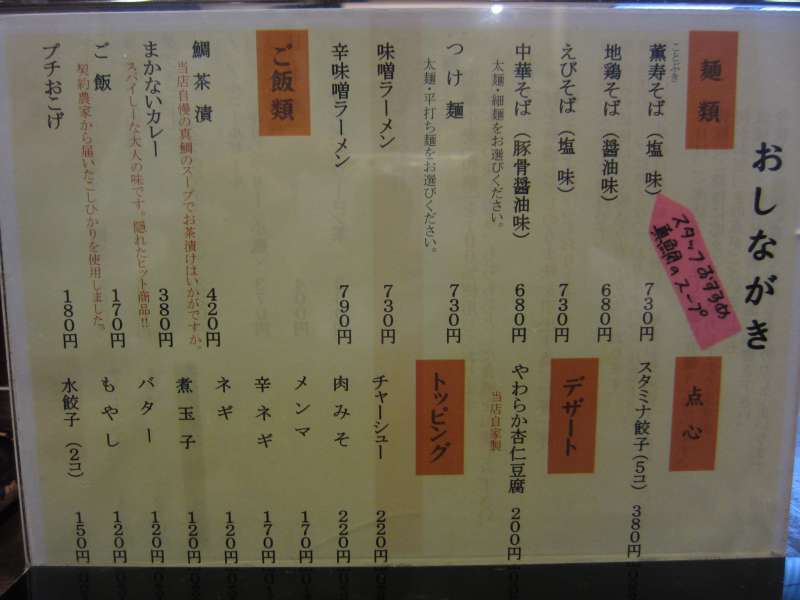 おしながき
麺類
ことぶき
薫寿そば（塩味） 730円
スタッフおすすめ
真鯛のスープ
地鶏そば（醤油味） 680円
えびそば（塩味） 730円
中華そば（豚骨醤油味） 680円
太麺・細麺をお選びください。
つけ麺 730円
太麺・平打ち麺をお選びください。
味噌ラーメン 730円
辛味噌ラーメン 790円
ご飯類
鯛茶漬 420円
当店自慢の真鯛のスープでお茶漬けはいかがですか。
まかないカレー 380円
スパイシーな大人の味です。隠れたヒット商品!!
ご飯 170円
契約農家から届いたこしひかりを使用しました。
プチおこげ 180円
点心
スタミナ餃子（5コ） 380円
デザート
やわらか杏仁豆腐 200円
当店自家製
トッピング
チャーシュー 220円
肉みそ 220円
メンマ 170円
辛ネギ 170円
ネギ 120円
煮玉子 120円
バター 120円
もやし 120円
水餃子（2コ） 150円